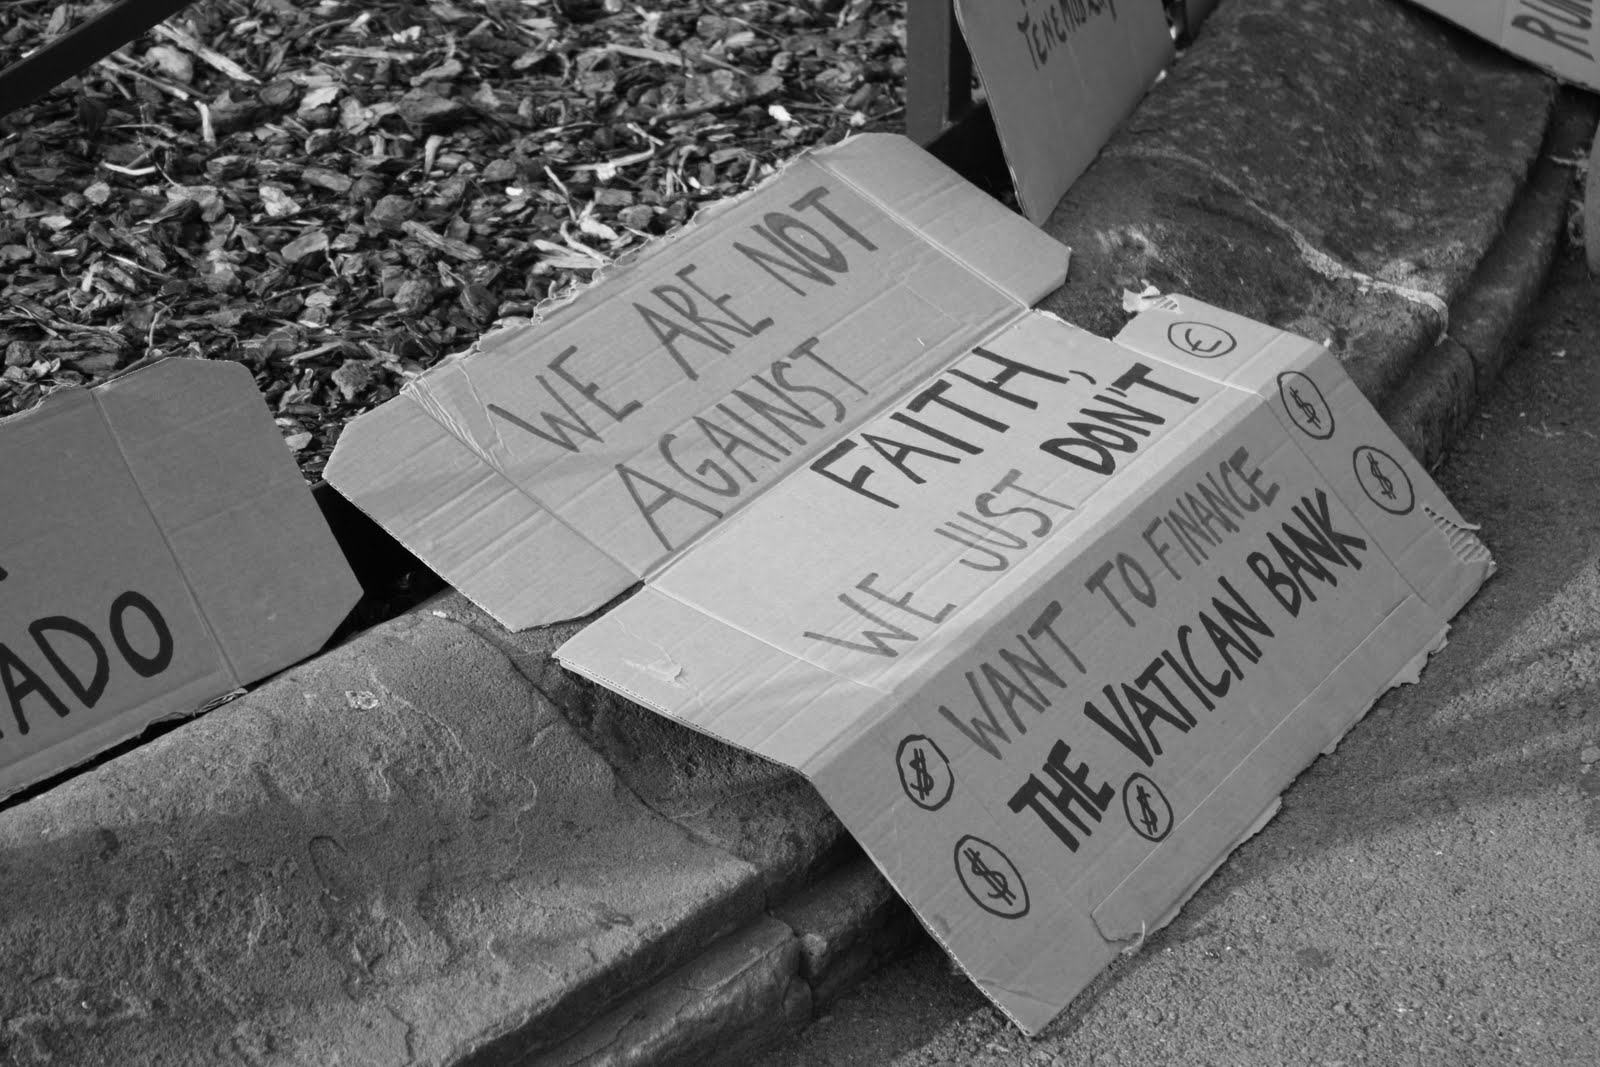 WE ARE NOT
AGAINST
FAITH,
WE JUST DON'T
WANT TO FINANCE
THE VATICAN BANK
€
$
$
$
$
$
ADO
TENEMOS
RUI